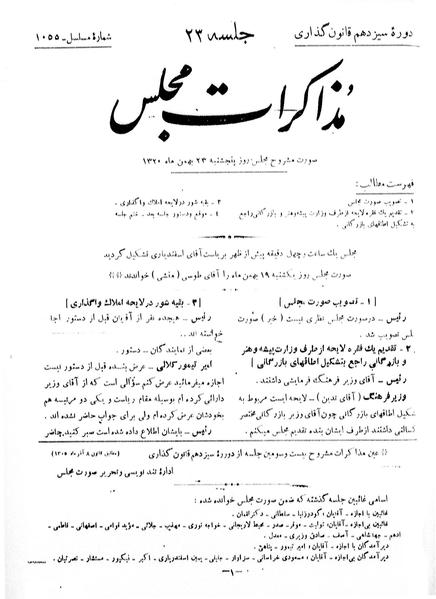 دورهٔ سیزدهم قانون گذاری
جلسه ۲۳
شمارهٔ مسلسل ـ ۱۰۵۵
مذاکرات مجلس
صورت مشروح مجلس روز پنجشنبه ۲۳ بهمن ماه ۱۳۲۰
فهرست مطالب:
۱ ـ تصویب صورت مجلس
۲ ـ تقدیم یک فقره لایحه از طرف وزارت پیشه و هنر و بازرگانی راجع
به تشکیل اطاقهای بازرگانی.
۳ ـ بقیه شور در لایحه املاک واگذاری.
۴ ـ موقع و دستور جلسه بعد ـ ختم جلسه
مجلس یک ساعت و چهل دقیقه پیش از ظهر بریاست آقای اسفندیاری تشکیل گردید
صورت مجلس روز یکشنبه ۱۹ بهمن ماه را آقای طوسی (منشی) خواندند
[ ۱ ـ تصویب صورت مجلس ]
رئیس ـ در صورت مجلس نظری نیست (خیر) صورت
مجلس تصویب شد.
۲ ـ تقدیم یک فقره لایحه از طرف وزارت پیشه و هنر
و بازرگانی راجع بتشکیل اطاقهای بازرگانی ]
رئیس ـ آقای وزیر فرهنگ فرمایشی داشتند.
وزیر فرهنگ (آقای تدین) ـ لایحه ایست مربوط به
تشکیل اطاقهای بازرگانی چون آقای وزیر بازرگانی مختصر
کسالتی داشتند از طرف ایشان بنده تقدیم مجلس میکنم.
[ ۳ ـ بقیه شور در لایحه املاک واگذاری ]
رئیس ـ هیجده نفر از آقایان قبل از دستور اجازه
خواسته اند..
بعضی از نمایندگان ـ دستور.
امیر تیمور کلالی ـ عرض بنده قبل از دستور نیست
اجازه میفرمائید عرض کنم سؤالی است که از آقای وزیر
دارائی کرده ام بوسیله مقام ریاست و یکی دو مرتبه هم
بخودشان عرض کرده ام ولی برای جواب حاضر نشده اند.
رئیس ـ بایشان اطلاع داده شده است صبر کنید حاضر
عین مذاکرات مشروح بیست و سومین جلسه از دوره سیزدهم قانون گذاری
(مطابق قانون ۸ آذر ماه ۱۳۰۵)
ادارهٔ تند نویسی و تحریر صورت مجلس
اسامی غائبین جلسه گذشته که ضمن صورت مجلس خوانده شده:
غائبین با اجازه ـ آقایان: گودرزنیا ـ سلطانی ـ دکتر ادهم
غائبین بی اجازه ـ آقایان: تولیت ـ موقر ـ صدر ـ محیط لاریجانی ـ خواجه نوری ـ مهذب ـ جلالی ـ مؤید قوامی ـ اصفهانی ـ فاطمی ـ
ادهم ـ جهانشاهی ـ آصف ـ صادق وزیری ـ معدل.
دیرآمدگان با اجازه ـ آقایان: امیر تیمور ـ پناهی.
دیرآمدگان بی اجازه ـ آقایان: مسعودی خراسانی ـ سزاوار ـ اسفندیاری ـ اکبر ـ نیکپور ـ مستشار ـ نصرتیان.
ـ ۱ ـ